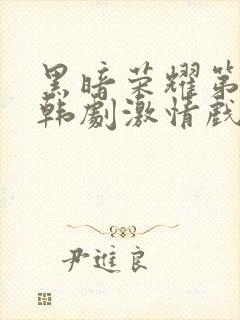 黑暗荣耀第
韩劇激情戲
尹進良